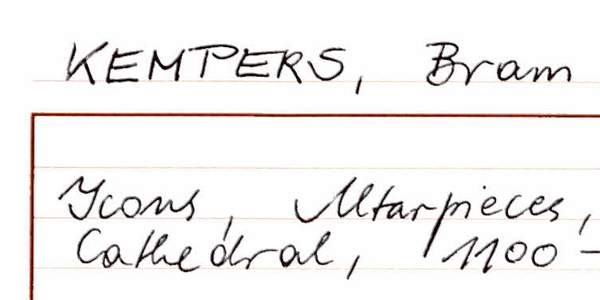 KEMPERS, Bram
Icons, Altarpieces,
Cathedral, 1100 –